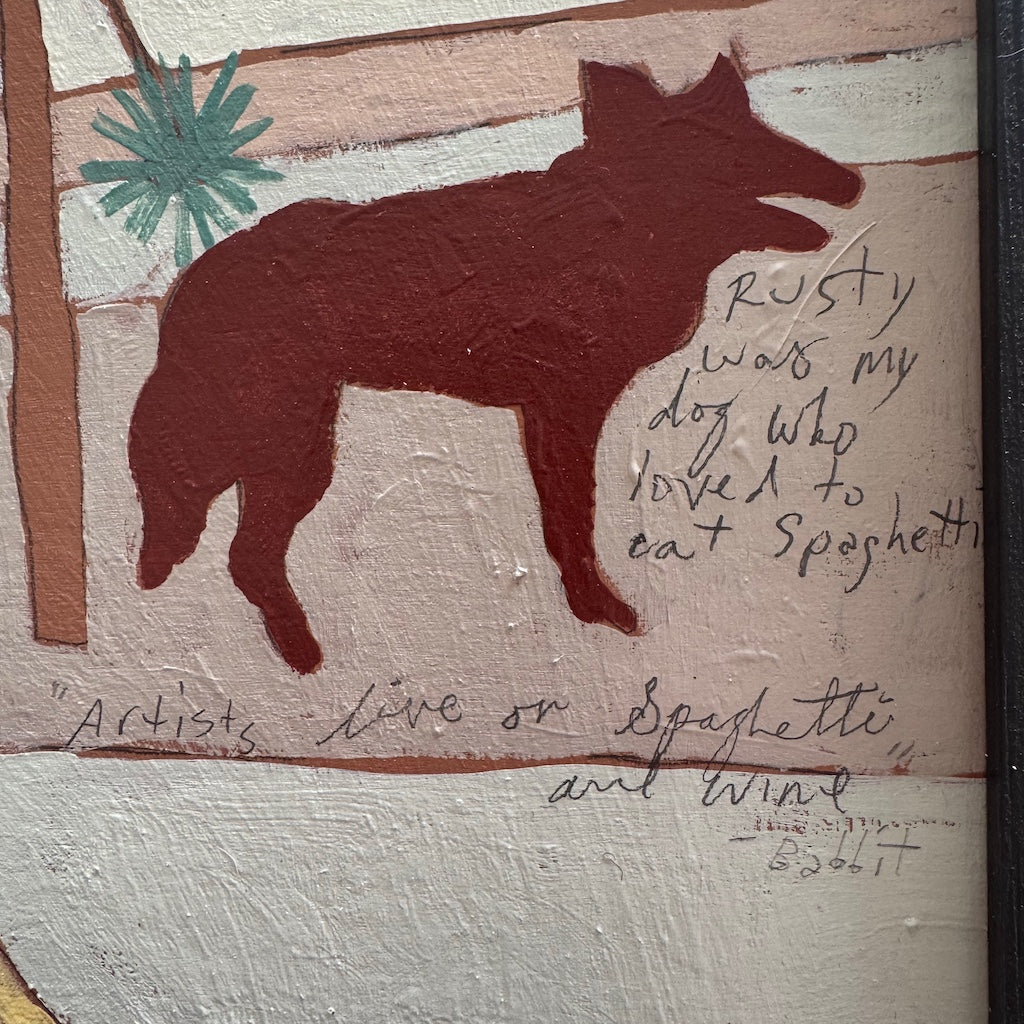 Rusty
was my
dog who
loved to
eat Spaghetti
"Artists live on Spaghetti"
and wine
- Babbit